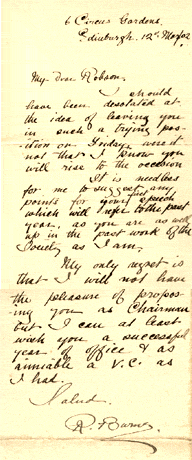 6 Circus Gardens,
Edinburgh, 12th Mar/02
My dear Robson,
I should
have been desolated at
the idea of leaving you
in such a trying pos-
ition on Friday were it
not that I know you
will rise to the occasion
It is needless
for me to suggest any
points for your speech
which will refer to the past
year, as you are as well
up in the past work of the
Society as I am.
My only regret is
that I will not have
the pleasure of propos-
ing you as Chairman
but I can at least
wish you a successful
year of office & as
amiable a V.C. as
I had.
Salud.
R. F. Burns